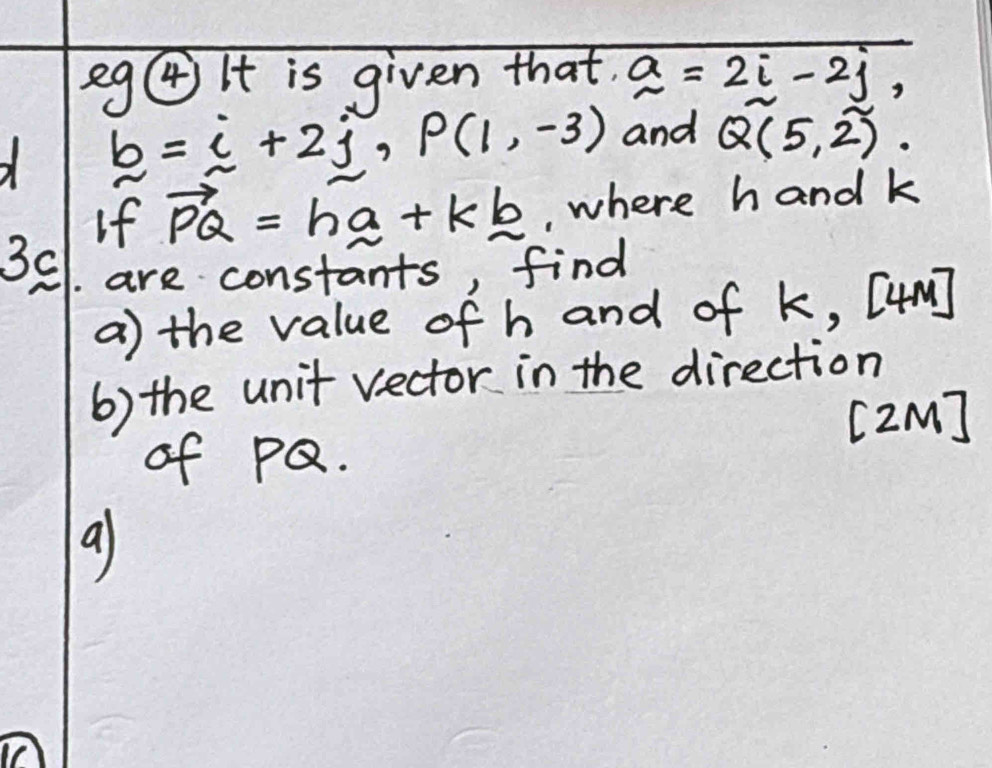 eg ④ It is given that a = 2i - 2j,
d b = i + 2j, P(1, -3) and Q(5,2).
If PQ = ha + kb, where h and k
3c. are constants, find
a) the value of h and of k, [4M]
b) the unit vector in the direction
of PQ. [2M]
a)